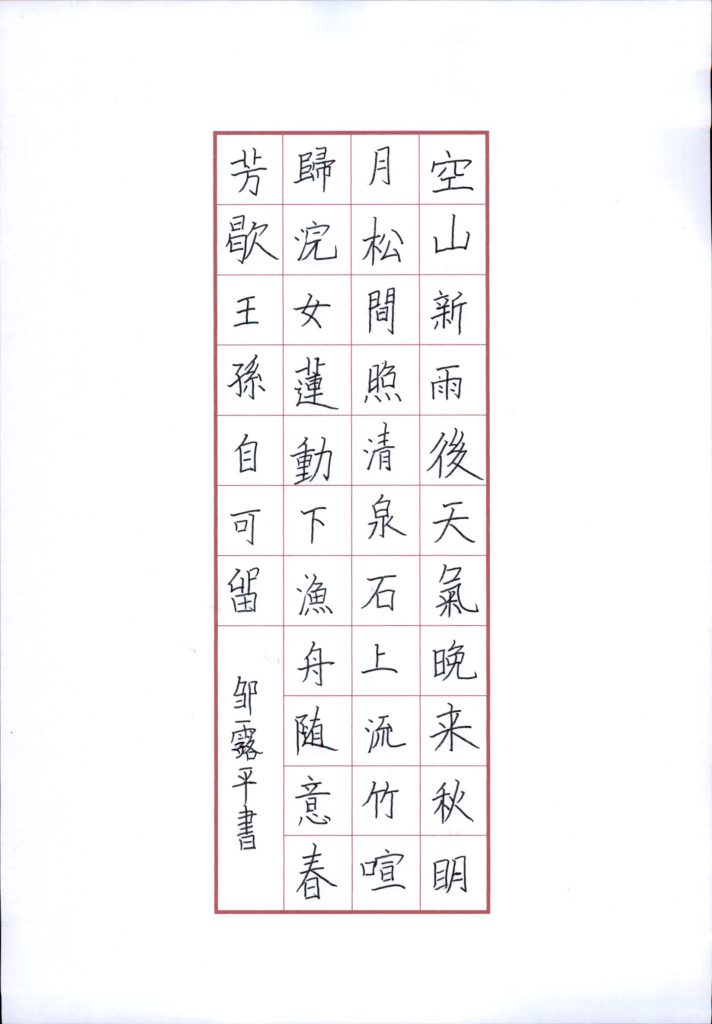 空山新雨後天氣晚来秋明
月松間照清泉石上流竹喧
歸浣女蓮動下漁舟随意春
芳歇王孫自可留
邹露平書